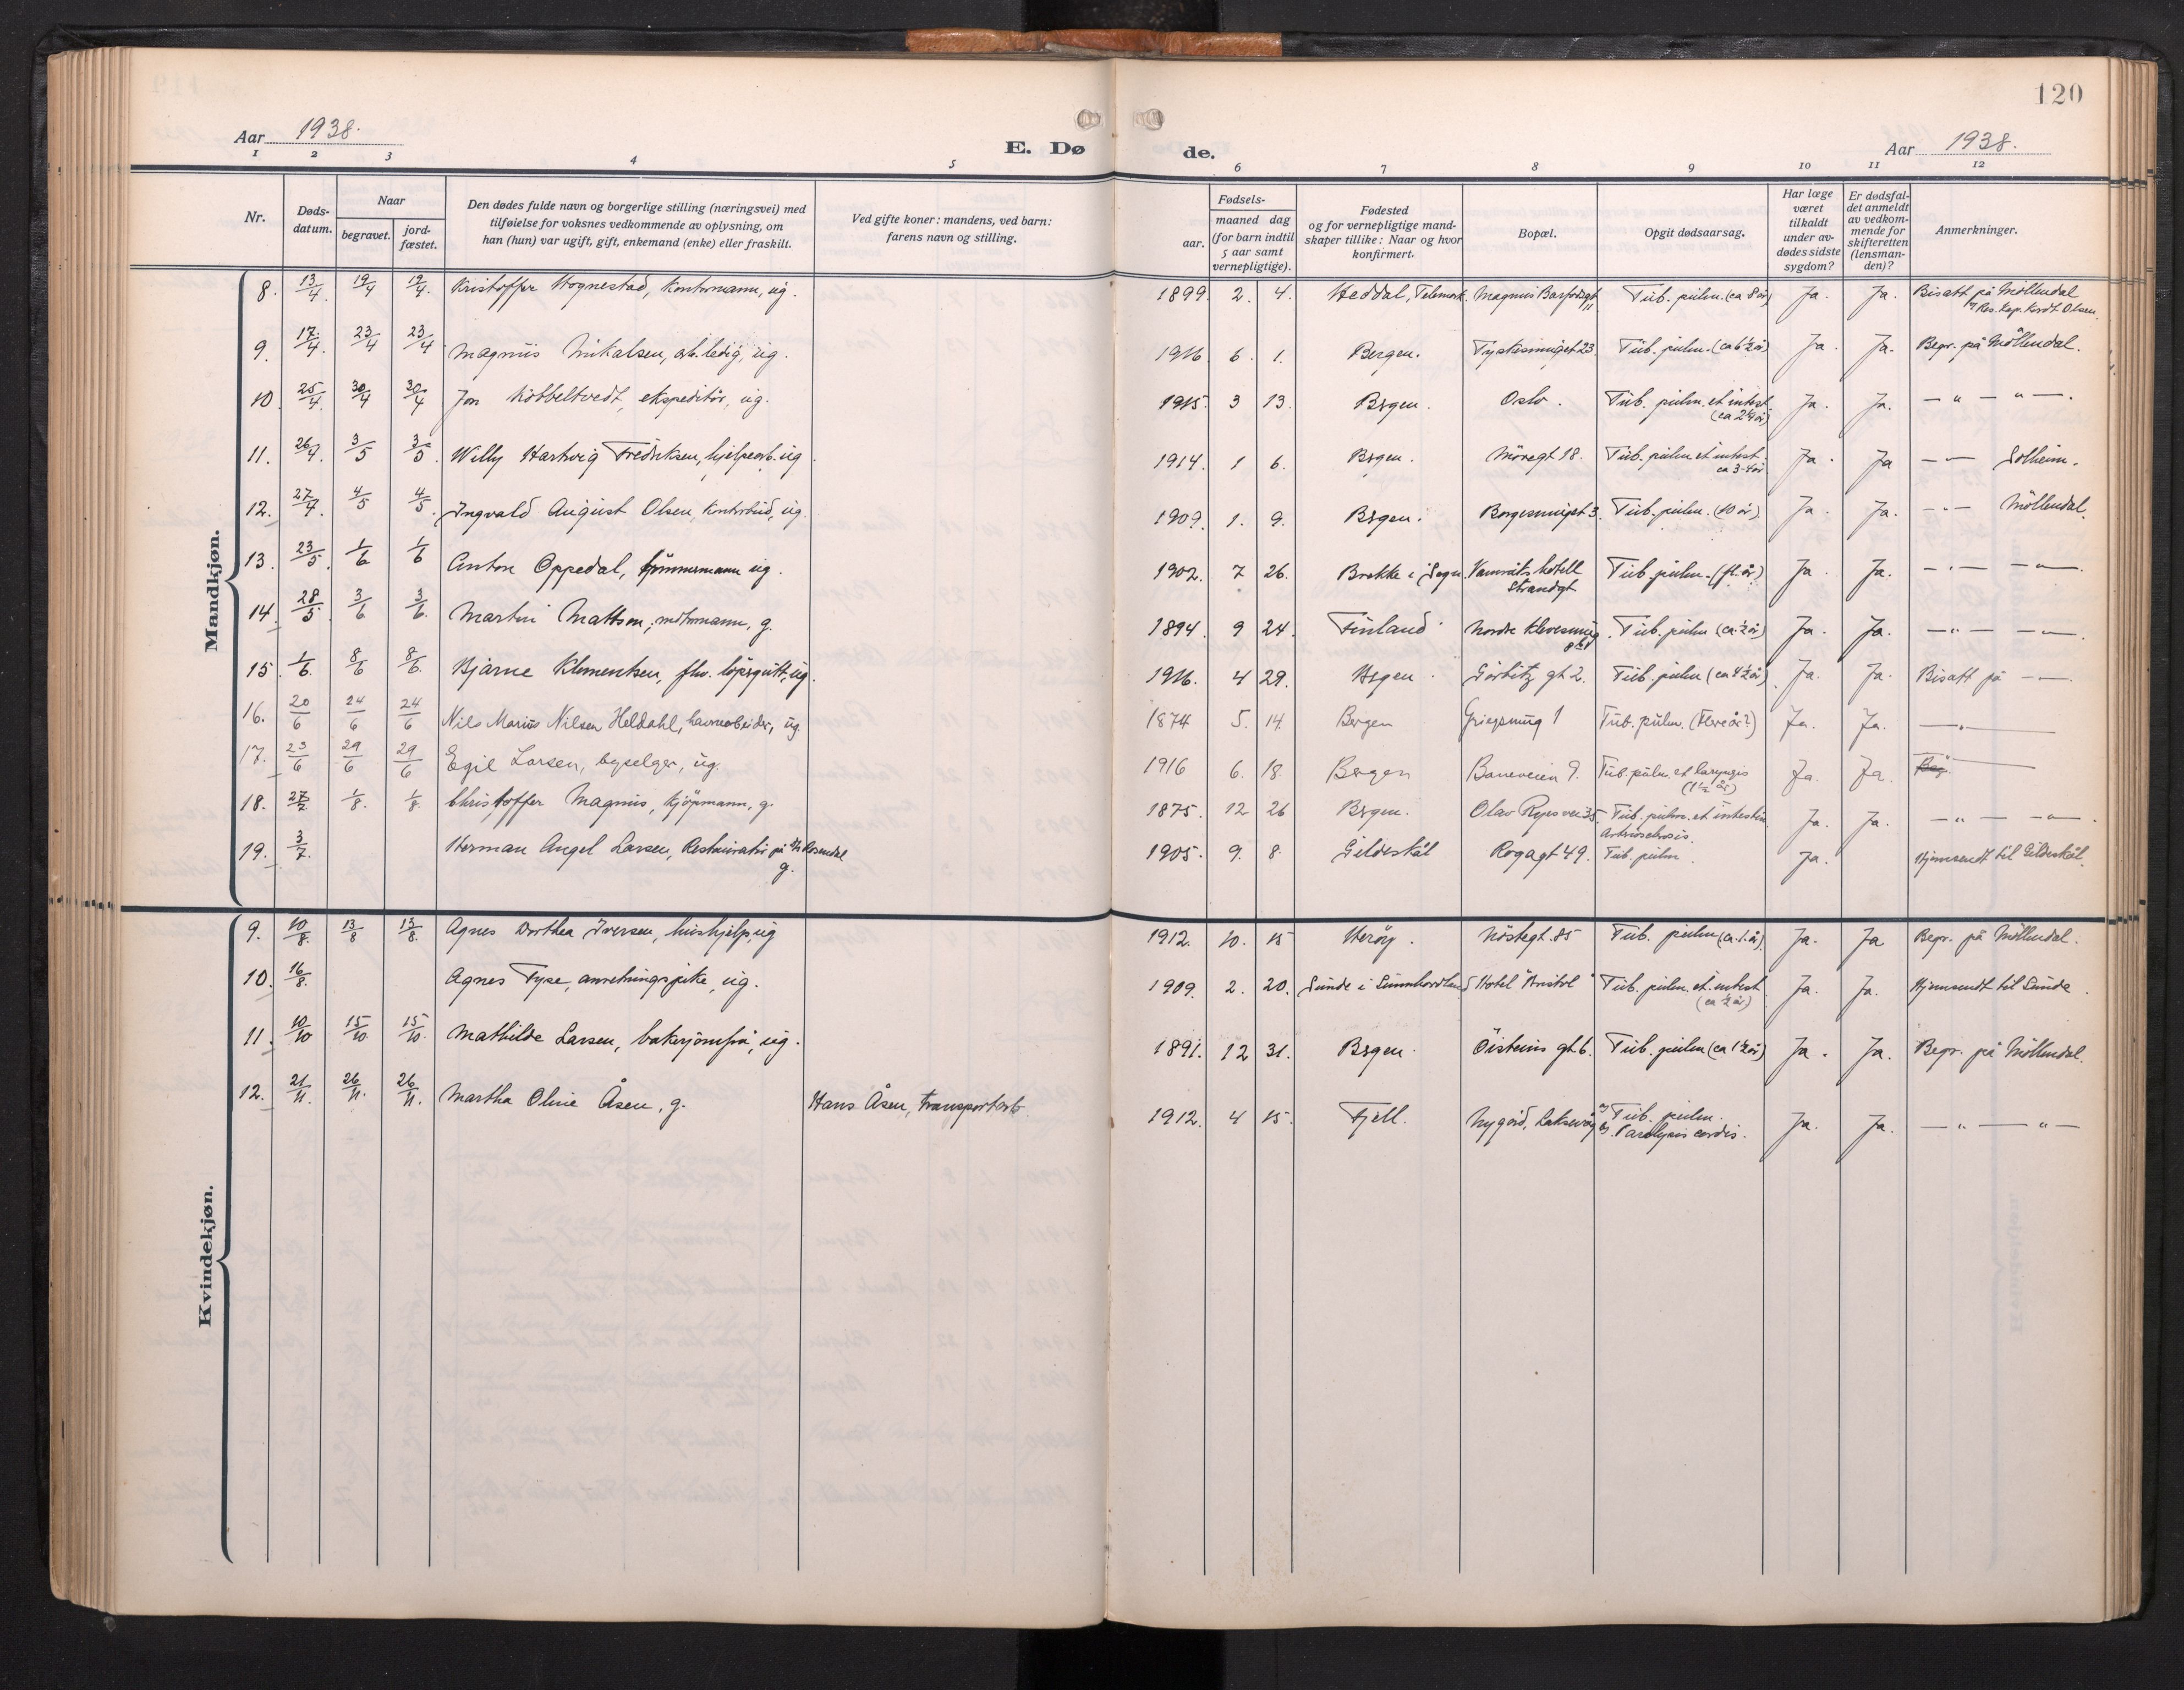 120
Aar 1938.
E. Dø de.
Aar 1938.
1 2 3 4 5 6 7 8 9 10 11 12
Nr.
Døds-datum.
Naar
begravet.
jord-fæstet.
Den dødes fulde navn og borgerlige stilling (næringsvei) med
tilføielse for voksnes vedkommende av oplysning, om
han (hun) var ugift, gift, enkemand (enke) eller fraskilt.
Ved gifte koner: mandens, ved barn:
farens navn og stilling.
Fødsels-
aar.
maaned dag
(for barn indtil
5 aar samt
vernepligtige).
Fødested
og for vernepligtige mand-
skaper tillike: Naar og hvor
konfirmert.
Bopæl.
Opgit dødsaarsag.
Har læge
været
tilkaldt
under av-
dødes sidste
sygdom?
Er dødsfal-
det anmeldt
av vedkom-
mende for
skifteretten
(lensman-
den)?
Anmerkninger.
Mandkjøn.
8. 13/4 19/4 19/4. Kristoffer Hognestad, kontormann, ug. 1899. 2. 4. Heddal, Telemark. Magnus Barfodsgt 11 Tub. pulm. (ca 8 år) Ja. Ja. Bisatt på Möllendal
v/ Res. kap. Kordt Olsen.
9. 17/4. 23/4 23/4 Magnus Mikalsen, arb.ledig, ug. 1916. 6. 1. Bergen. Tyskesmuget 23. Tub. pulm. (ca 6½ år) Ja. Ja. Begr. på Möllendal.
10. 25/4. 30/4 30/4 Jon Kobbeltvedt, ekspeditör, ug. 1915. 3 13. Bergen. Oslo. Tub. pulm. et intest. Ja. Ja. — " — " —.
11. 26/4. 3/5 3/5. Willy Hartvig Fredriksen, hjelpearb. ug. 1914. 1 6. Bergen. Möregt 18. Tub. pulm et intest. Ja. Ja — " — Solheim.
ca 3-4 år
12. 27/4. 4/5 4/5. Ingvald August Olsen, kontorbud, ug. 1909. 1. 9. Bergen. Borgesmuget 3. Tub. pulm. (10 år) Ja. Ja. — " — Möllendal.
13. 23/5. 1/6 1/6 Anton Oppedal, tömmermann ug. 1902. 7 26. Brekke i Sogn. hotell Tub. pulm. (fl. år) Ja. Ja. — " — — " —.
Strandgt
14. 28/5. 3/6 3/6. Martin Mattson, g. 1894. 9 24. Finland. Nordre Tub. pulm (ca ½ år) Ja. Ja. — " — — " —.
15. 1/6. 8/6 8/6. Bjarne Klementsen, fhv. löpsgutt, ug. 1916. 4 29. Bergen. Görbitz gt 2. Tub. pulm (ca 4½ år) Ja. Ja. Bisatt på — " —.
16. 20/6 24/6 24/6 Nils Marius Nilsen Heldahl, havnearbeider, ug. 1874 5. 14. Bergen Griegsmug 1 Tub. pulm. (Flere år?) Ja. Ja. — " —
17. 23/6 29/6 29/6 Egil Larsen, byselger, ug. 1916 6. 18. Bergen Baneveien 9. Tub. pulm. et laryngis Ja. Ja. Beg.
(1½ år)
18. 27/7. 1/8. 1/8. Christoffer Magnus, kjöpmann, g. 1875. 12 26 Bergen. Olav Ryes vei 35. Tub. pulm. et intestin. Ja. Ja. — " — — " —.
Arteriosclerosis.
19. 3/7. Herman Angel Larsen, Restauratør på Rosendal 1905. 9. 8. Gildeskål Rogagt 49. Tub. pulm. Ja. Hjemsendt til Gildeskål.
g.
Kvindekjøn.
9. 10/8. 13/8 13/8. Agnes Dorthea Iversen, hushjelp, ug 1912. 10. 15 Heröy. Nöstegt. 85 Tub. pulm (ca. 1. år). Ja. Ja Begr. på Möllendal.
10. 16/8. Agnes Tyse, anretningspike, ug. 1909. 2. 20. Sunde i Sunnhordland Hotel "Bristol" Tub. pulm. et intest. Ja. Ja. Hjemsendt til Sunde.
(ca ½ år)
11. 10/10 15/10 15/10. Mathilde Larsen, bakerjomfru, ug. 1891. 12 31. Bergen. Öisteins gt. 6. Tub. pulm (ca 1½ år) Ja. Ja. Begr. på Möllendal.
12. 21/11. 26/11. 26/11. Martha Oline Åsen, g. Hans Åsen, transportarb. 1912. 4 15. Fjell. Nygård, Laksevåg 1) Tub. pulm. Ja. Ja. — " — " —
2) Paralysis cordis.